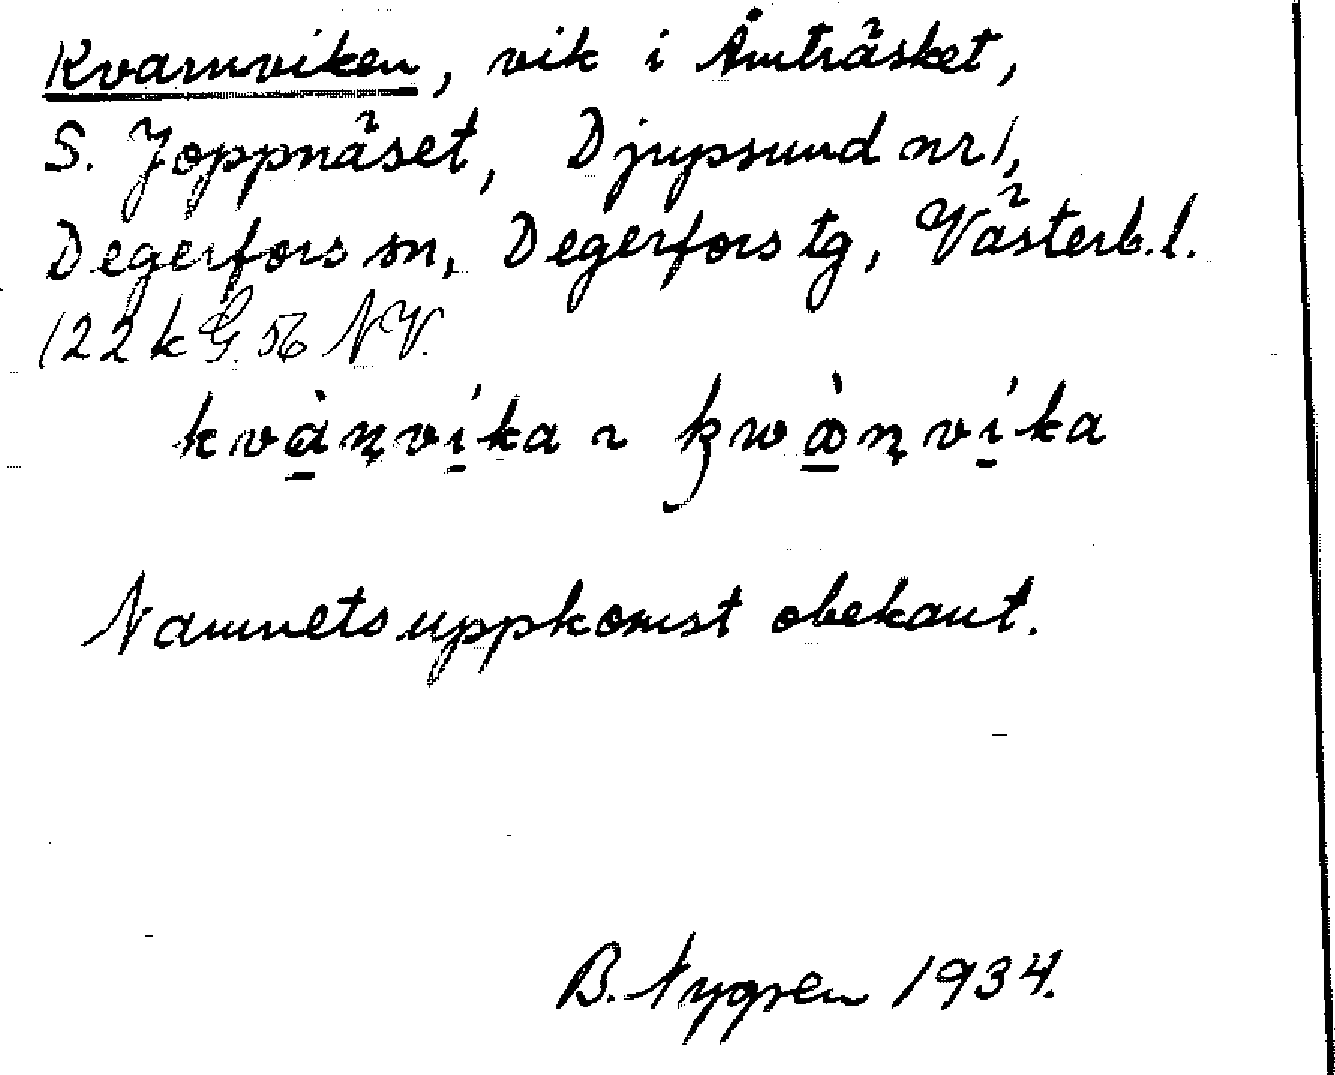 Kvarnviken, vik i Åmträsket,
S. Joppnäset, Djupsund nr 1,
Degerfors sn, Degerfors tg, Västerb. l.
122 k G. 56 NV.
kvànvíka ~ kwànvíka
Namnets uppkomst obekant.
B. Nygren 1934.